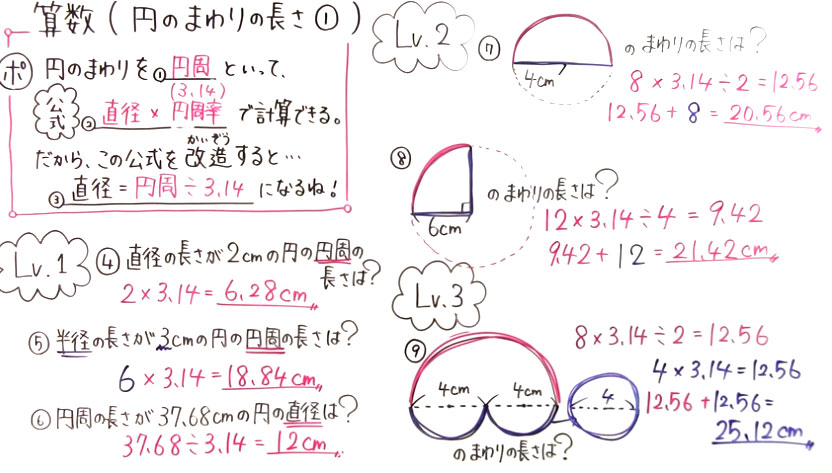 算数（円のまわりの長さ①）
ポ 円のまわりを①円周といって、
(3.14)
公式 ②直径×円周率 で計算できる。
かいぞう
だから、この公式を改造すると…
③直径=円周÷3.14 になるね！
Lv.1
④直径の長さが2cmの円の円周の
長さは？
2×3.14=6.28cm
⑤半径の長さが3cmの円の円周の長さは？
6×3.14=18.84cm
⑥円周の長さが37.68cmの円の直径は？
37.68÷3.14=12cm
Lv.2
⑦ のまわりの長さは？
4cm
8×3.14÷2=12.56
12.56+8=20.56cm
⑧ のまわりの長さは？
6cm
12×3.14÷4=9.42
9.42+12=21.42cm
Lv.3
⑨
4cm 4cm
4
のまわりの長さは？
8×3.14÷2=12.56
4×3.14=12.56
12.56+12.56=
25.12cm